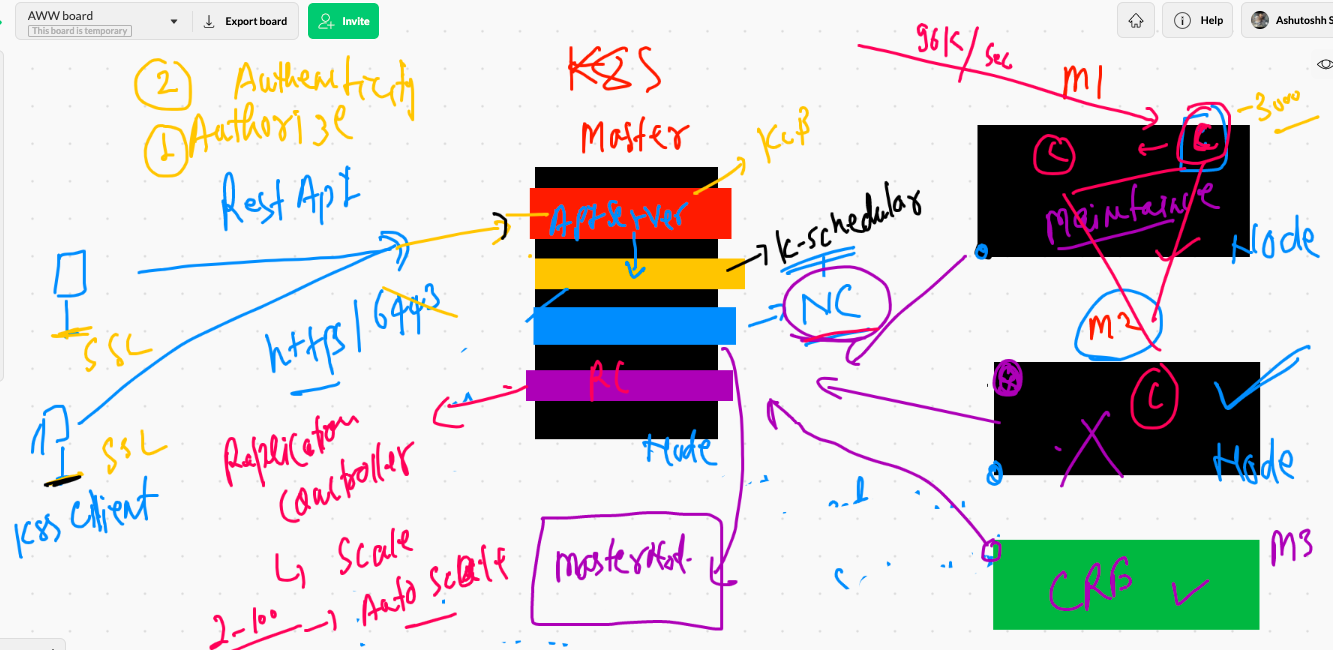 AWW board
This board is temporary
Export board
Invite
Help
Ashutoshh S
2 Authenticity
1 Authorize
Rest ApI
https | 6443
SSL
SSL
K8S Client
K8S
Master
ApiServer
K-schedular
NC
RC
Node
Replication
Controller
Scale
Auto Scale
2-100
96K/sec
M1
C
C
-3000
Node
M2
C
Node
M3